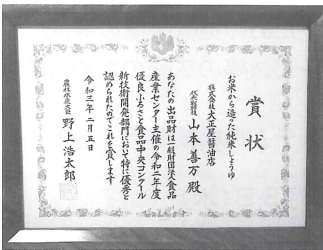 賞状
お米から造った純米しょうゆ
株式会社大正屋醤油店
代表取締役 山本善万 殿
あなたの出品財は一般財団法人食品
産業センター主催の令和二年度
優良ふるさと食品中央コンクール
新技術開発部門において特に優秀と
認められたのでこれを賞します
令和三年二月五日
農林水産大臣 野上浩太郎